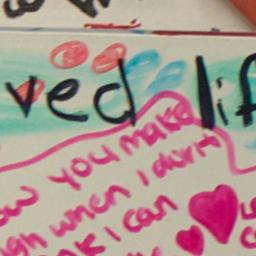 ved lif
ow you make
ugh when I don't
nk I can